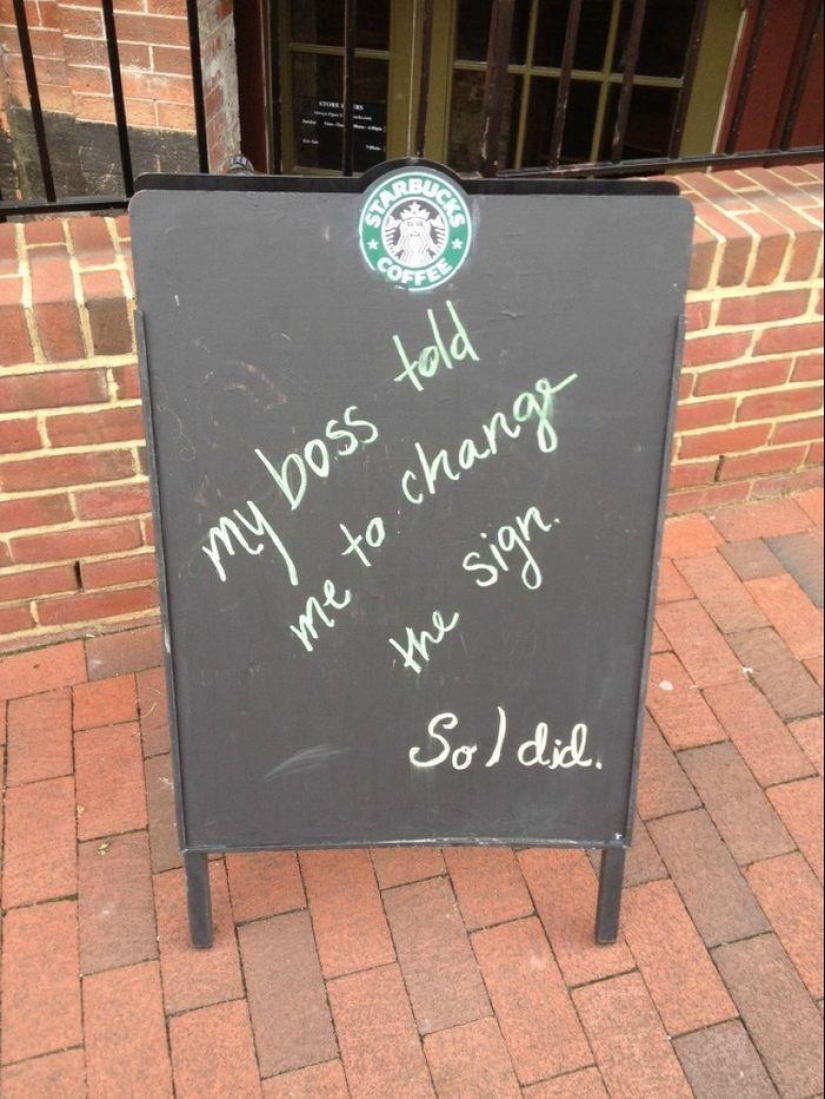 STARBUCKS
COFFEE
my boss told
me to change
the sign.
So I did.